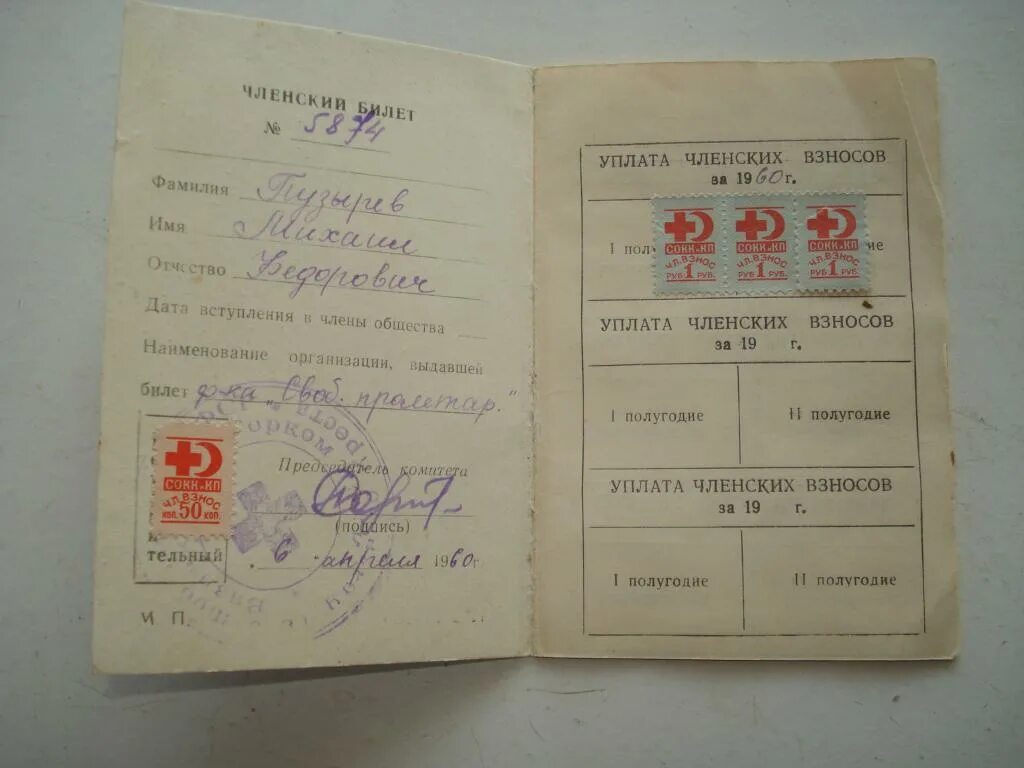 ЧЛЕНСКИЙ БИЛЕТ
№ 5874
Фамилия Пузырев
Имя Михаил
Отчество Федорович
Дата вступления в члены общества
Наименование организации, выдавшей
билет ф-ка „Своб. пролетар."
Председатель комитета
(подпись)
СОКК и КП
ЧЛ. ВЗНОС
КОП. 50 КОП.
тельный
6 апреля 1960 г
М. П.
УПЛАТА ЧЛЕНСКИХ ВЗНОСОВ
за 1960 г.
I полу дие
СОКК и КП СОКК и КП СОКК и КП
ЧЛ. ВЗНОС ЧЛ. ВЗНОС ЧЛ. ВЗНОС
РУБ 1 РУБ. РУБ 1 РУБ. РУБ 1 РУБ.
УПЛАТА ЧЛЕНСКИХ ВЗНОСОВ
за 19 г.
I полугодие II полугодие
УПЛАТА ЧЛЕНСКИХ ВЗНОСОВ
за 19 г.
I полугодие II полугодие